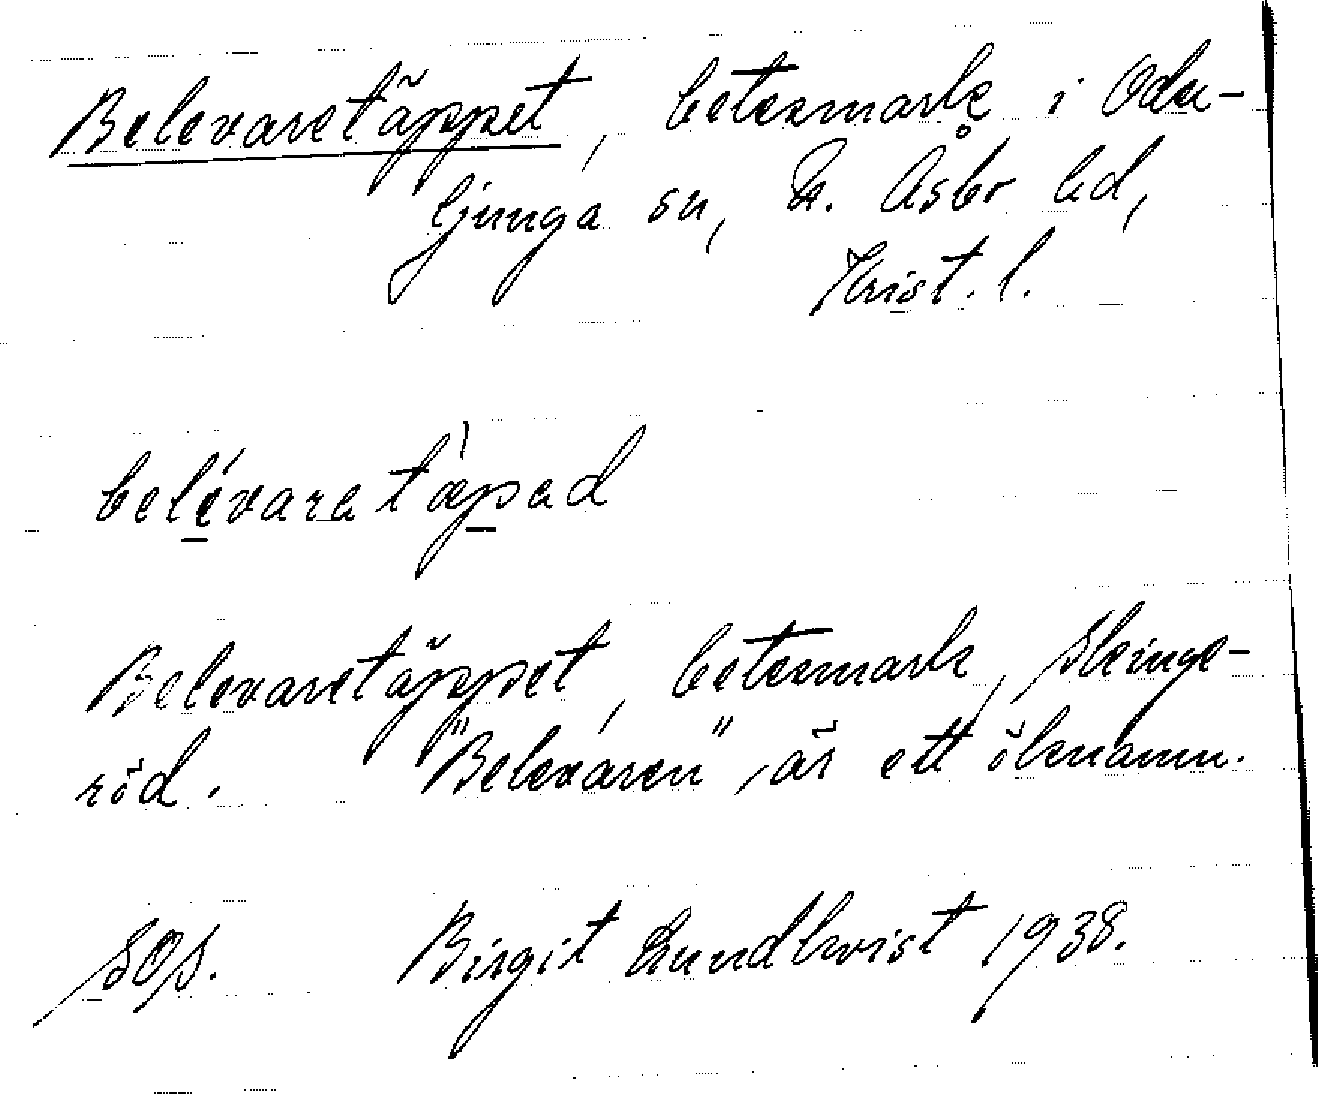 Belevaretäppet, betesmark i Oder-
ljunga sn, N. Åsbo hd,
Krist. l.
belévaratäpad
Belevaretäppet, betesmark, Skinge-
röd. "Belevaren", är ett öknamn.
SOS. Birgit Lundkvist 1938.